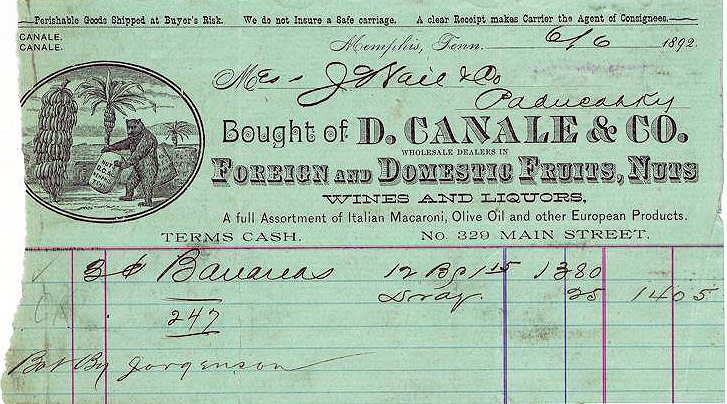 Perishable Goods Shipped at Buyer's Risk. We do not Insure a Safe carriage. A clear Receipt makes Carrier the Agent of Consignees.
CANALE.
CANALE.
Memphis, Tenn. 6/6 1892.
Mess J Wail & Co
Paducah Ky
Bought of D. CANALE & CO.
WHOLESALE DEALERS IN
FOREIGN AND DOMESTIC FRUITS, NUTS
WINES AND LIQUORS,
A full Assortment of Italian Macaroni, Olive Oil and other European Products.
TERMS CASH. No. 329 MAIN STREET.
Bananas 12 1 15 13 80
Dray. 25 14 05
247
Bot By Jorgenson